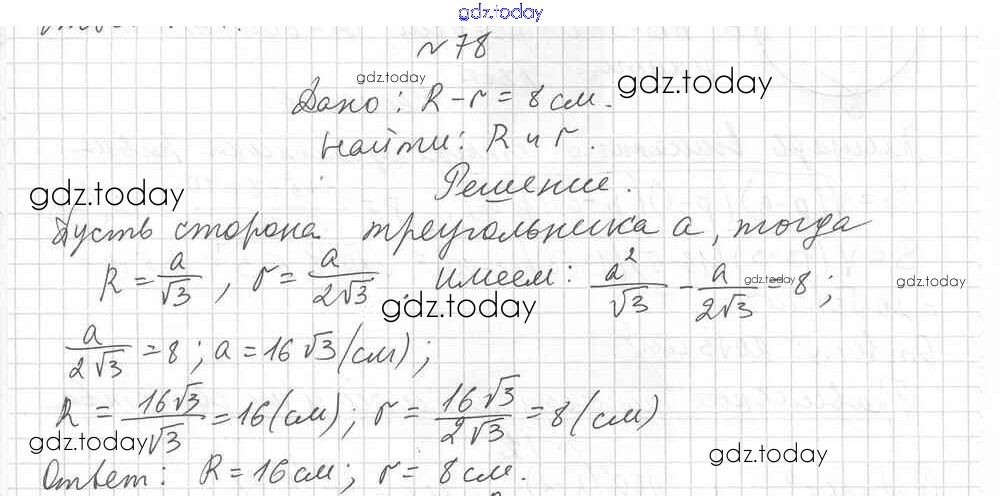 gdz.today
№ 78
gdz.today
Дано: R - r = 8 см.
gdz.today
Найти: R и r.
Решение.
gdz.today
Пусть сторона треугольника a, тогда
R = a/√3, r = a/2√3. имеем: a²/√3 - a/2√3 = 8;
gdz.today
gdz.today
gdz.today
a/2√3 = 8; a = 16√3 (см);
R = 16√3/√3 = 16 (см); r = 16√3/2√3 = 8 (см)
gdz.today
gdz.today
Ответ: R = 16 см; r = 8 см.